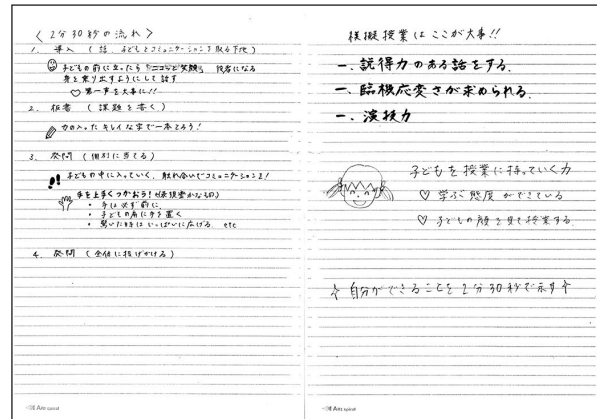 〈2分30秒の流れ〉
1. 導入 (話、子どもとコミュニケーションを取る下地)
子どもの前に立ったら "ニコッと笑顔" 役者になる
身を乗り出すようにして話す
♡ 第一声を大事に!!
2. 板書 (課題を書く)
力の入ったキレイな字で一本とろう!
3. 発問 (個別に当てる)
!! 子どもの中に入っていく、触れ合いでコミュニケーションを!
手を上手くつかおう!
・手は必ず前に
・子どもの肩に手を置く
・驚いた時はいっぱいに広げる etc
4. 発問 (全体に投げかける)
Ami spiral
模擬授業はここが大事!!
一、説得力のある話をする.
一、臨機応変さが求められる.
一、演技力
子どもを授業に持っていく力
♡ 学ぶ態度ができている
♡ 子どもの顔を見て授業する
自分ができることを2分30秒で示す
Ami spiral